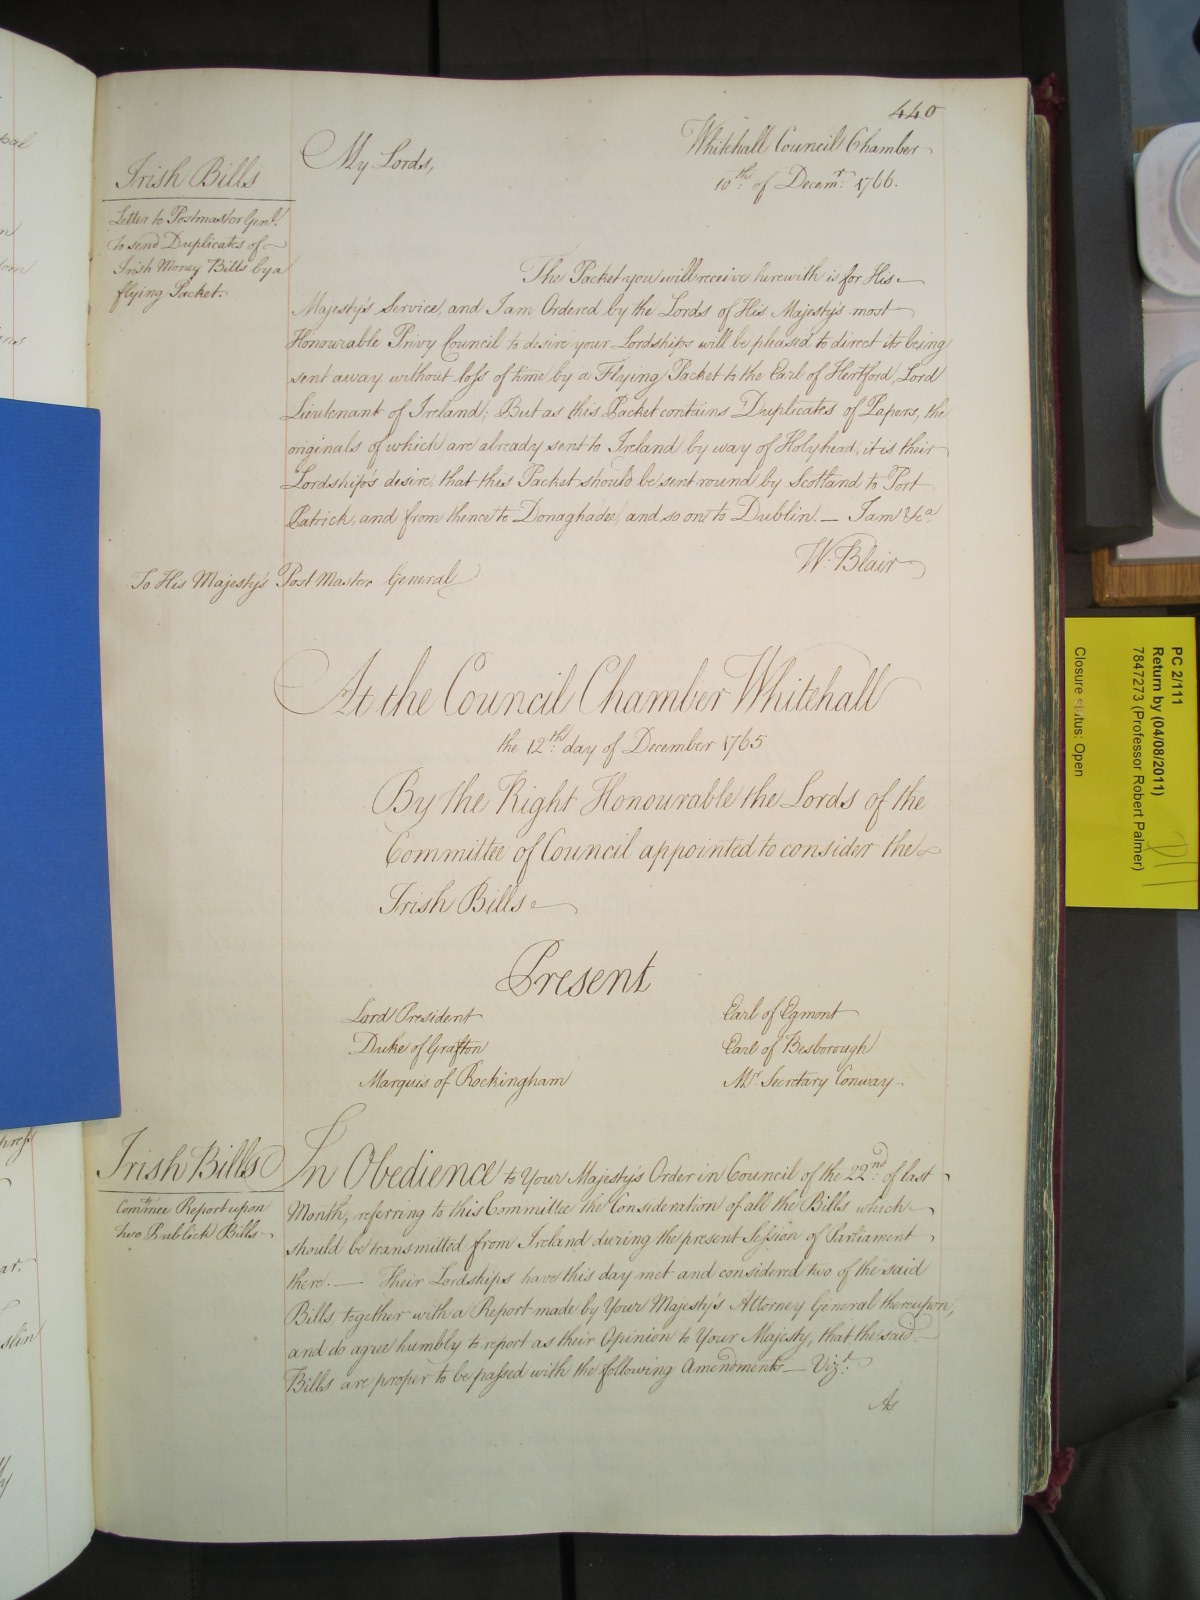 440
Whitehall Council Chamber
10th: of Decemr: 1766.
My Lords,
Irish Bills
Letter to Postmaster Genl.
to send Duplicates of
Irish Money Bills by a
flying Packet.
The Packet you will receive herewith is for His
Majesty's Service, and I am Ordered by the Lords of His Majesty's most
Honourable Privy Council to desire your Lordships will be pleased to direct its being
sent away without loss of time by a Flying Packet to the Earl of Hertford, Lord
Lieutenant of Ireland; But as this Packet contains Duplicates of Papers, the
originals of which are already sent to Ireland by way of Holyhead, it is their
Lordship's desire, that this Packet should be sent round by Scotland to Port
Patrick, and from thence to Donaghadee, and so on to Dublin. — I am &ca.
W. Blair
To His Majesty's Post Master General
At the Council Chamber Whitehall
the 12th: day of December 1765
By the Right Honourable the Lords of the
Committee of Council appointed to consider the
Irish Bills
Present
Lord President
Duke of Grafton
Marquis of Rockingham
Earl of Egmont
Earl of Besborough
Mr. Secretary Conway
Irish Bills
Comttee Report upon
two Publick Bills
In Obedience to Your Majesty's Order in Council of the 22nd: of last
Month, referring to this Committee the Consideration of all the Bills which
should be transmitted from Ireland during the present Session of Parliament
there. — Their Lordships have this day met and considered two of the said
Bills, together with a Report made by Your Majesty's Attorney General thereupon,
and do agree humbly to report as their Opinion to Your Majesty, that the said
Bills are proper to be passed with the following Amendments — Vizt:
As
PC 2/111
Return by (04/08/2011)
7847273 (Professor Robert Palmer)
Closure status: Open